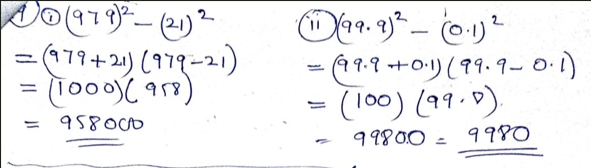 1) i) (979)² − (21)²
= (979+21) (979−21)
= (1000)(958)
= 958000
ii) (99.9)² − (0.1)²
= (99.9+0.1) (99.9−0.1)
= (100) (99.8).
= 9980.0 = 9980